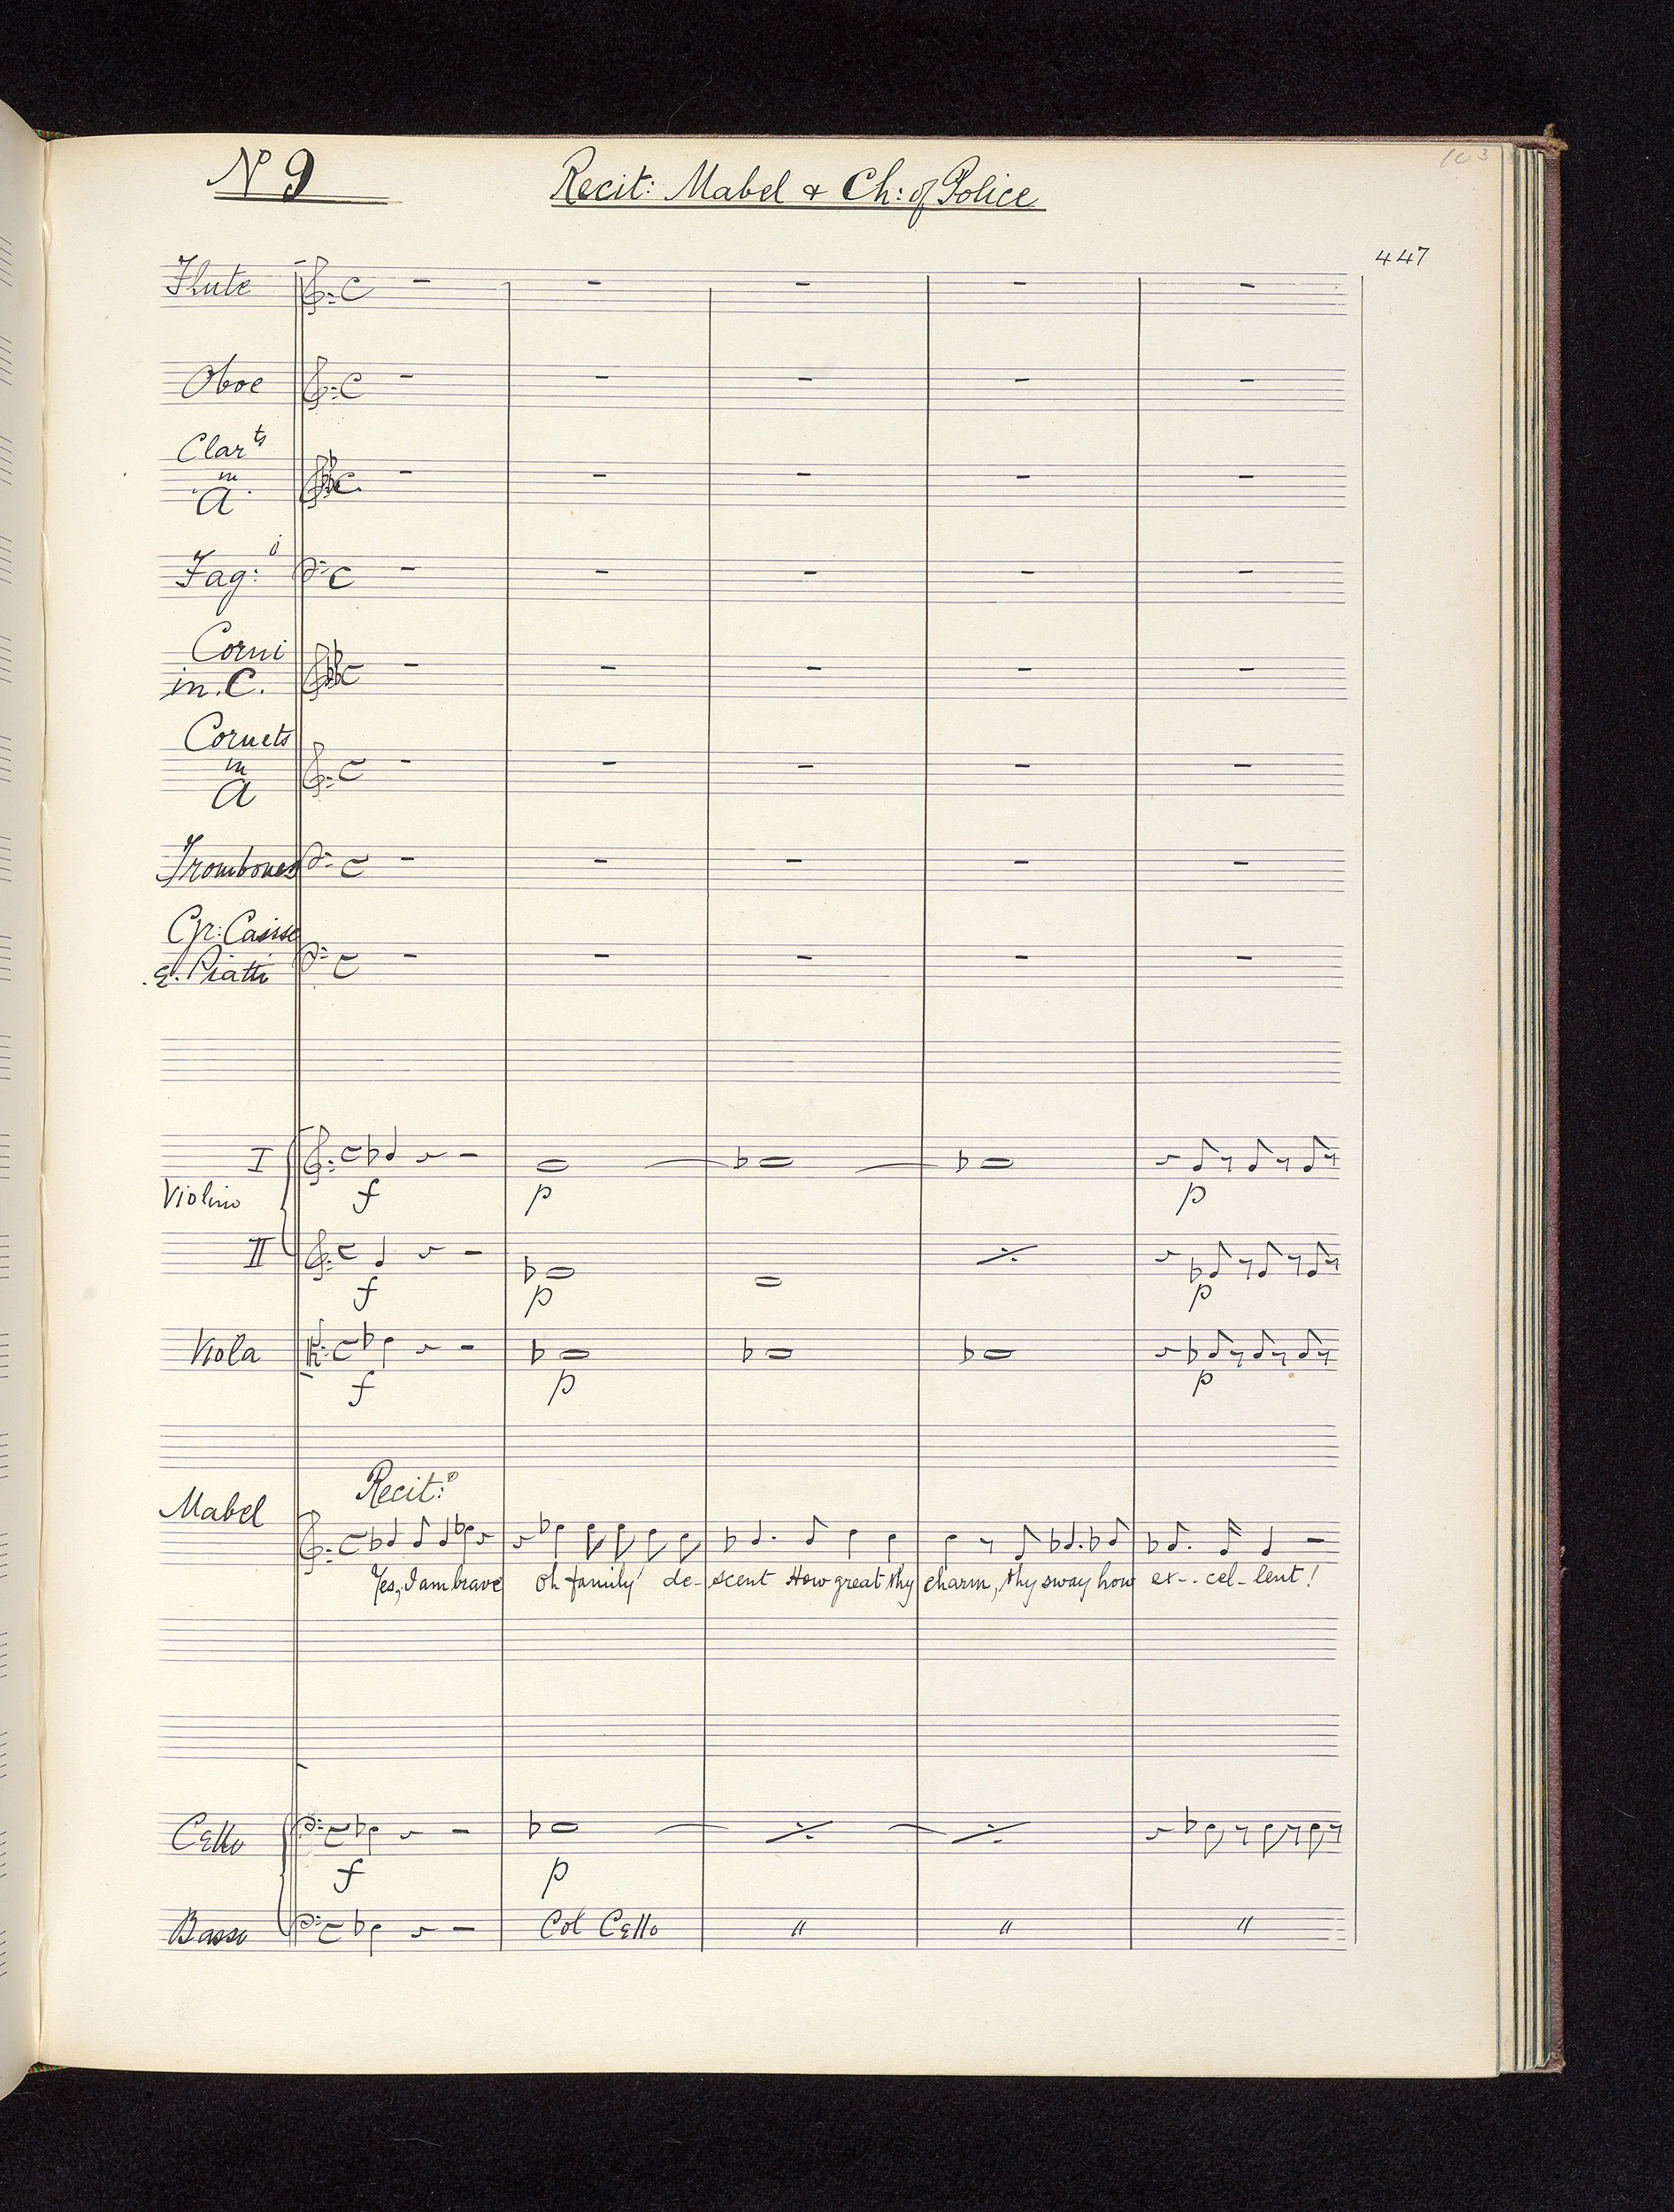 No 9 Recit: Mabel & Ch: of Police
103
447
Flute
Oboe
Clarts
in
A
Fag:i
Corni
in C.
Cornets
in
A
Trombones
Gr: Caisse
e. Piatti
I
Violino
f p p
II
f p p
Viola
f p p
Recit:o
Mabel
Yes, I am brave Oh family de-scent How great thy charm, thy sway how ex--cel-lent!
Cello
f p
Basso Col Cello " " "